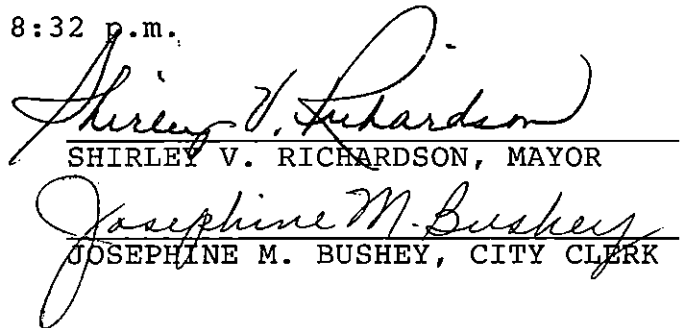 8:32 p.m.
Shirley V. Richardson
SHIRLEY V. RICHARDSON, MAYOR
Josephine M. Bushey
JOSEPHINE M. BUSHEY, CITY CLERK